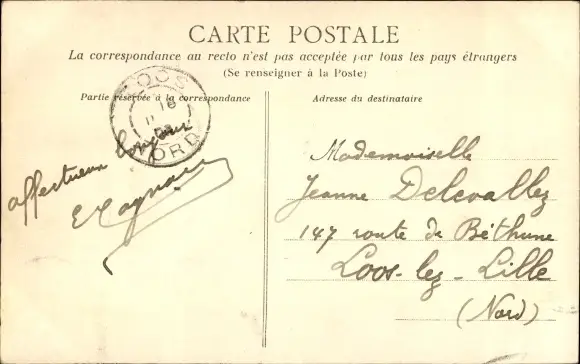 CARTE POSTALE
La correspondance au recto n'est pas acceptée par tous les pays étrangers
(Se renseigner à la Poste)
Partie réservée à la correspondance
Adresse du destinataire
LOOS
16
NORD
affectueux bonjour
Mademoiselle
Jeanne Delevallez
147 route de Béthune
Loos-lez-Lille
(Nord)